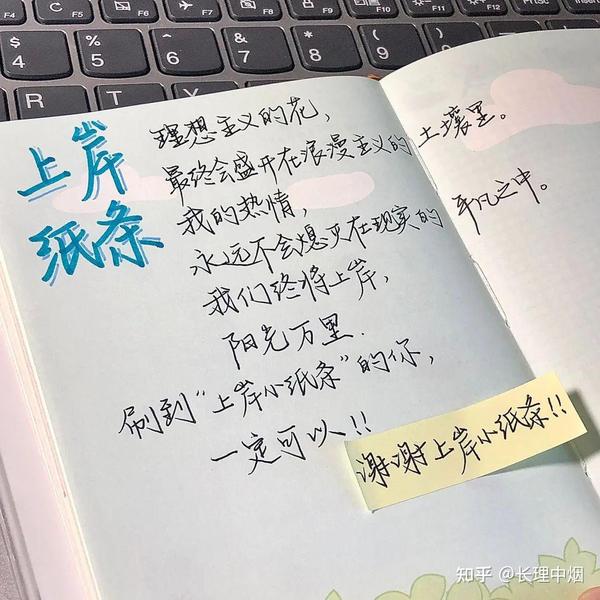 F4
F5
F6
F7
F8
F9
F10
F11
F12
Insert
$
4
%
5
^
6
&
7
*
8
(
9
)
0
R
T
上岸
纸条
理想主义的花，
最终会盛开在浪漫主义的土壤里。
我的热情，
永远不会熄灭在现实的平凡之中。
我们终将上岸，
阳光万里.
刷到“上岸小纸条”的你，
一定可以!!
谢谢上岸小纸条!!
知乎 @长理中烟